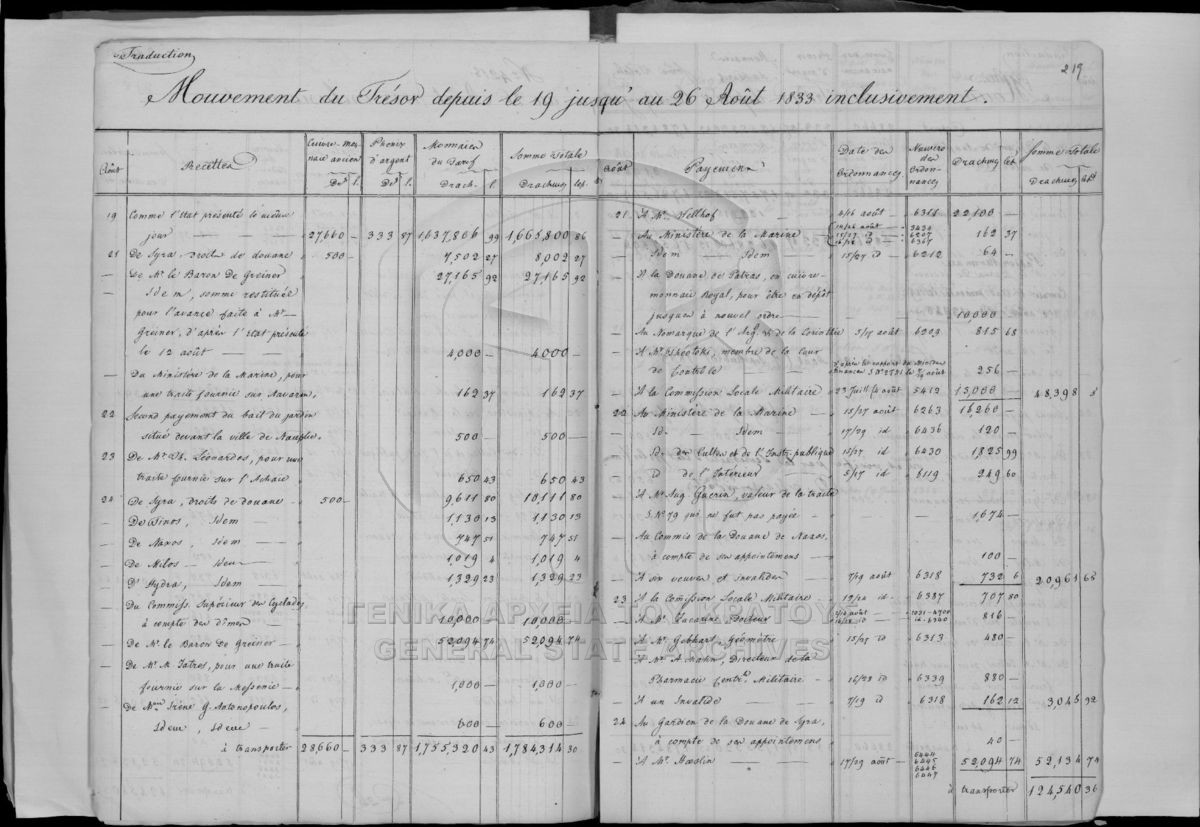 Traduction
219
Mouvement du Trésor depuis le 19 jusqu' au 26 Août 1833 inclusivement.
Août Recettes Cuivre mon naie ancien Phenix d'argent Monnaies du Tarif Somme Totale
Drach. l. Drachmes lep.
19 Comme l'Etat présenté le même
jour 27,660 — 333 87 1,637,806 99 1,665,800 86
21 De Syra droits de douane 500 — 7,502 27 8,002 27
— De Mr le Baron De Greiner 27,165 92 27,165 92
— Idem, somme restituée
pour l'avance faite à Mr
Greiner, d'après l'Etat présenté
le 12 août 4,000 — 4,000 —
— Du Ministère de la Marine, pour
une traite fournie sur Navarin 162 37 162 37
22 Second payement du bail du jardin
situé devant la ville de Nauplie 500 — 500 —
23 De Mr Th. Léonardos, pour une
traite fournie sur l'Achaie 650 43 650 43
24 De Syra, droits de douane 500 — 9611 80 10111 80
— De Tinos, Idem 1,130 13 1,130 13
— De Naxos, Idem 747 51 747 51
— De Milos, Idem 1,019 4 1,019 4
— D'Hydra, Idem 1,329 23 1,329 23
— Du Commiss. Supérieur des Cyclades
à compte des dîmes 10,000 — 10,000 —
— De Mr le Baron De Greiner 52,094 74 52,094 74
— De Mr M. Iatros, pour une traite
fournie sur la Messenie 1,000 — 1,000 —
— De Mme Irène G. Antonopoulos,
Idem, Idem 600 — 600 —
à transporter 28,660 — 333 87 1,755,320 43 1,784,314 30
Août Payemens Date des Ordonnances Numéro des Ordonnances Drachmes lep. Somme Totale
Drachmes lept.
21 A Mr Hellhof 4/16 août 6314 22,100 —
— Au Ministère de la Marine 14/26 août 3434
15/27 id 6207 162 37
16/28 id 6367
— Idem Idem 15/27 id 6212 64 —
— A la Douane de Patras, en cuivre
monnaie Royal, pour être en dépôt
jusques à nouvel ordre 10,000
— Au Nomarque de l'Arg. & de la Corinthie 5/17 août 6209 815 68
— A Mr Theotoki, membre de la Cour
de Contrôle 256 —
— A la Commission Locale Militaire 23 Juill/4 août 5412 15,000 48,398 5
22 Au Ministère de la Marine 15/27 août 6263 16260 —
— Id. Idem 17/29 id 6436 120 —
— Id. des Cultes et de l'Instr. publique 15/27 id 6430 1825 99
— id de l'Intérieur 5/17 id 6119 249 60
— A Mr Aug. Guerin, valeur de la traite
S. No 79 qui ne fut pas payée 1,674 —
— Au Commis de la Douane de Naxos,
à compte de ses appointemens 100 —
— A six veuves et invalides 7/19 août 6318 732 6 20,961 65
23 A la Comission Locale Militaire 12/24 id 6387 707 80
— A Mr Zucarini Docteur 816 —
— A Mr Gebhart, Géomètre 15/27 id 6313 480 —
— A Mr A. Mahn, Directeur de la
Pharmacie Centrle Militaire 16/28 id 6339 880 —
— A un Invalide 7/19 id 6318 162 12 3,045 92
24 Au Gardien de la Douane de Syra,
à compte de ses appointemens 40 —
— A Mr Hæslin 17/29 août 6444
6445 52,094 74 52,134 74
6446
6447
à transporter 124,540 36
ΓΕΝΙΚΑ ΑΡΧΕΙΑ ΤΟΥ ΚΡΑΤΟΥΣ
GENERAL STATE ARCHIVES